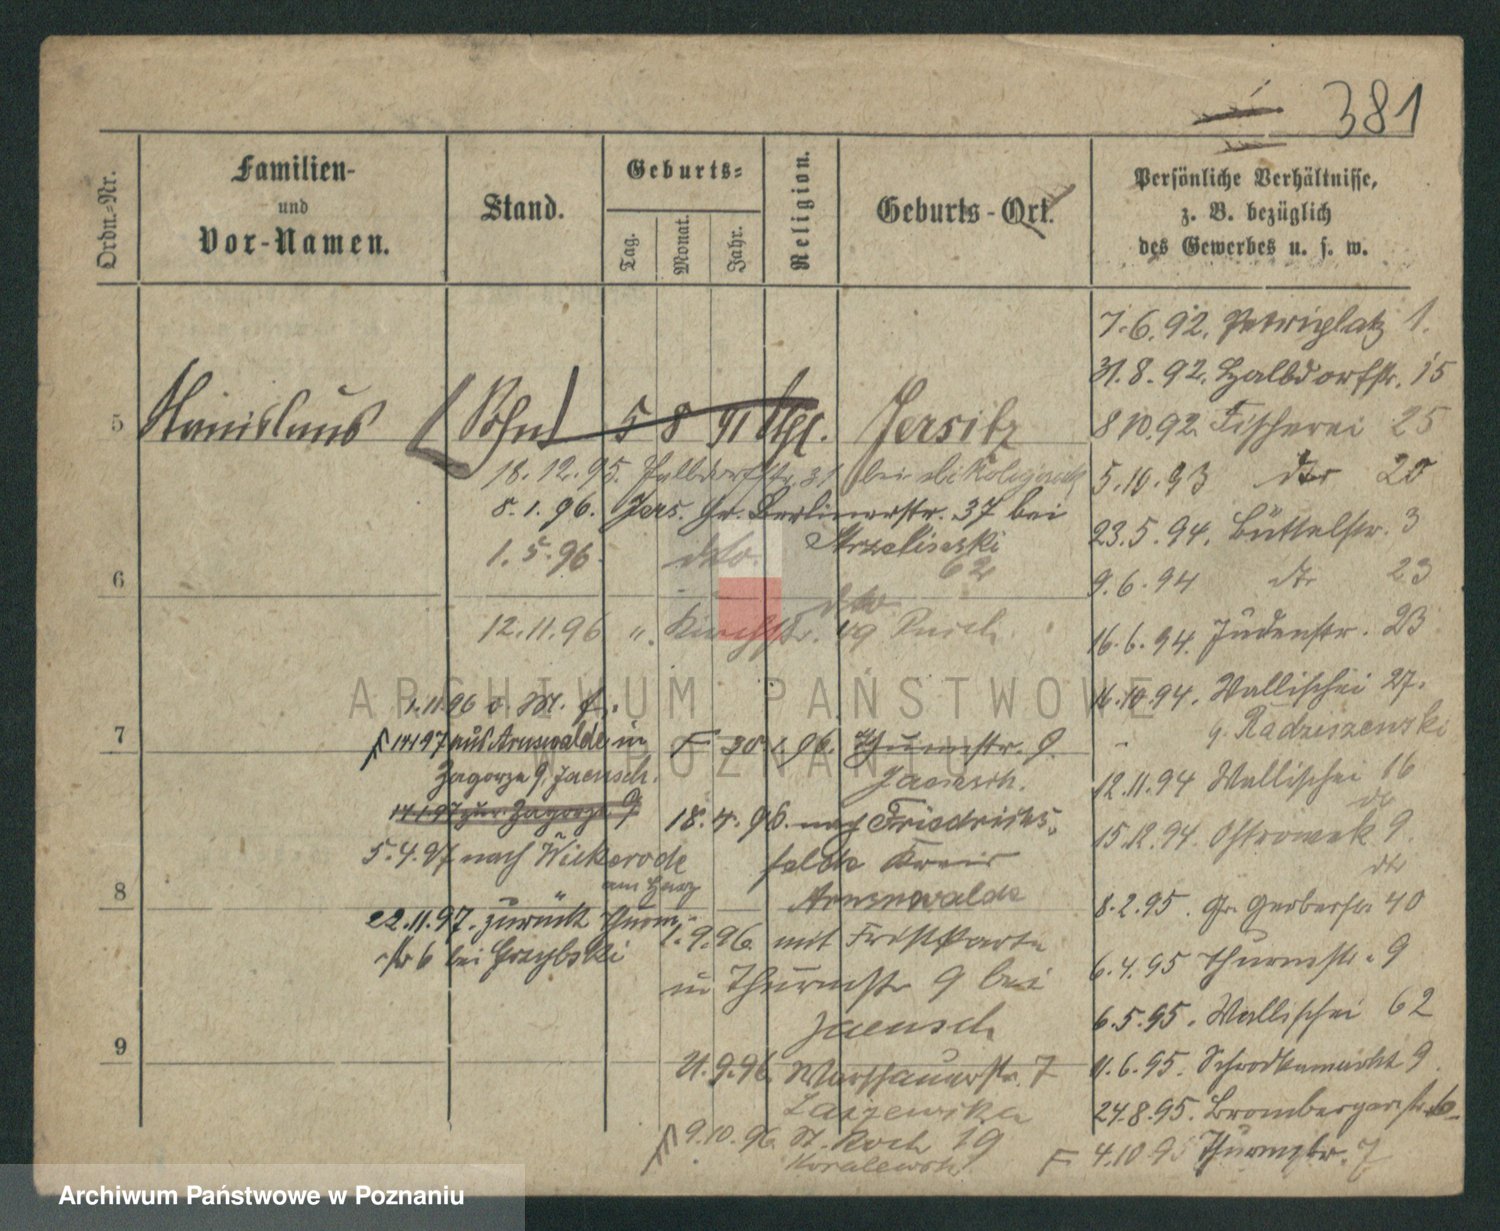 381
Ordn.-Nr.
Familien-
und
Vor-Namen.
Stand.
Geburts-
Tag.
Monat.
Jahr.
Religion.
Geburts-Ort.
Persönliche Verhältnisse,
z. B. bezüglich
des Gewerbes u. s. w.
5 Stanislaus Sohn 5 8 91 Jersitz
18.12.95. Halbdorfstr. 31 bei
8.1.96. Jers. Gr. Berlinerstr. 37 bei
Strzelinski
1.5.96. dto. 62
6
dto
12.11.96 " Kirchstr. 49
1.11.96 v. M. f.
14197 aus Arnswalde in
Zagorze 9, Jaensch.
14.1.97 zur Zagorze 9
5.4.97 nach Wickerode
am Harz
22.11.97. zurück Thurm-
str 6 bei Grzybski
7
F 20 1.96. Thurmstr. 9.
Jaensch.
18.4.96. nach Friedrichs-
felde Kreis
Arnswalde
8
1.9.96 mit Fristkarte
in Thurmstr 9 bei
Jaensch
9
21.9.96. Warschauerstr. 7
Laszewska
9.10.96. St. Roch 19
Koralewski
7.6.92. Petriplatz 1.
31.8.92. Halbdorfstr. 15
8 10.92. Fischerei 25
5.10.93 dto 20
23.5.94. Büttelstr. 3
9.6.94 dto 23
16.6.94. Judenstr. 23
16.10.94. Wallischei 27.
Radziszewski
12.11.94 Wallischei 16
dto
15.12.94. Ostrowek 9.
dto
8.2.95. Gr. Gerberstr 40
6.4.95 Thurmstr. 9
6.5.95. Wallischei 62
11.6.95. Schrodkamarkt 9
24.8.95. Brombergerstr. 6
F 4.10.95 Thurmstr. 7
ARCHIWUM PAŃSTWOWE
W POZNANIU
Archiwum Państwowe w Poznaniu